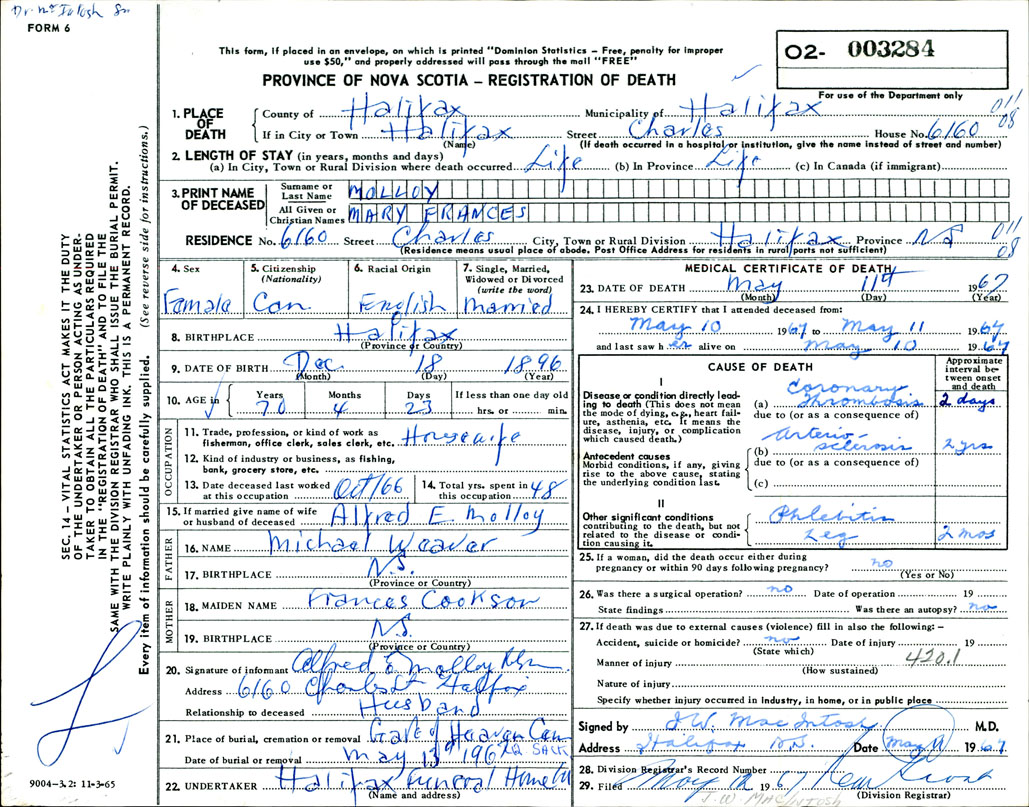 Dr. McIntosh Sn
FORM 6
This form, if placed in an envelope, on which is printed "Dominion Statistics – Free, penalty for improper
use $50," and properly addressed will pass through the mail "FREE"
PROVINCE OF NOVA SCOTIA – REGISTRATION OF DEATH
O2- 003284
For use of the Department only
011
08
1. PLACE OF DEATH
County of Halifax Municipality of Halifax
If in City or Town Halifax Street Charles House No. 6160
(Name) (If death occurred in a hospital or institution, give the name instead of street and number)
2. LENGTH OF STAY (in years, months and days)
(a) In City, Town or Rural Division where death occurred Life (b) In Province Life (c) In Canada (if immigrant)
3. PRINT NAME OF DECEASED
Surname or Last Name MOLLOY
All Given or Christian Names MARY FRANCES
RESIDENCE No. 6160 Street Charles City, Town or Rural Division Halifax Province NS
(Residence means usual place of abode. Post Office Address for residents in rural parts not sufficient)
011
08
4. Sex
Female
5. Citizenship
(Nationality)
Can
6. Racial Origin
English
7. Single, Married,
Widowed or Divorced
(write the word)
Married
8. BIRTHPLACE Halifax
(Province or Country)
9. DATE OF BIRTH Dec 18 1896
(Month) (Day) (Year)
10. AGE in
Years Months Days If less than one day old
70 4 23 hrs. or min.
OCCUPATION
11. Trade, profession, or kind of work as
fisherman, office clerk, sales clerk, etc. Housewife
12. Kind of industry or business, as fishing,
bank, grocery store, etc.
13. Date deceased last worked
at this occupation Oct/66
14. Total yrs. spent in
this occupation 48
15. If married give name of wife
or husband of deceased Alfred E. Molloy
FATHER
16. NAME Michael Weaver
17. BIRTHPLACE N.S.
(Province or Country)
MOTHER
18. MAIDEN NAME Frances Cookson
19. BIRTHPLACE N.S.
(Province or Country)
20. Signature of informant Alfred E Molloy
Address 6160 Charles St Halifax
Relationship to deceased Husband
21. Place of burial, cremation or removal Gate of Heaven Cem
Date of burial or removal May 13th 1967 SACK
22. UNDERTAKER Halifax Funeral Home
(Name and address)
MEDICAL CERTIFICATE OF DEATH
23. DATE OF DEATH May 11th 1967
(Month) (Day) (Year)
24. I HEREBY CERTIFY that I attended deceased from:
May 10 1967 to May 11 1967
and last saw her alive on May 10 1967
CAUSE OF DEATH
Approximate
interval be-
tween onset
and death
I
Disease or condition directly lead-
ing to death (This does not mean
the mode of dying, e.g., heart fail-
ure, asthenia, etc. It means the
disease, injury, or complication
which caused death.)
(a) Coronary
Thrombosis 2 days
due to (or as a consequence of)
Antecedent causes
Morbid conditions, if any, giving
rise to the above cause, stating
the underlying condition last.
(b) Arterio-
sclerosis 2 yrs
due to (or as a consequence of)
(c)
II
Other significant conditions
contributing to the death, but not
related to the disease or condi-
tion causing it.
Phlebitis
Leg 2 mos
25. If a woman, did the death occur either during
pregnancy or within 90 days following pregnancy? no
(Yes or No)
26. Was there a surgical operation? no Date of operation 19
State findings Was there an autopsy? no
27. If death was due to external causes (violence) fill in also the following:–
Accident, suicide or homicide? no Date of injury 19
(State which)
Manner of injury 420.1
(How sustained)
Nature of injury
Specify whether injury occurred in industry, in home, or in public place
Signed by J.W. MacIntosh M.D.
Address Halifax N.S. Date May 1967
28. Division Registrar's Record Number
29. Filed May 12 1967
(Division Registrar)
J. W. MACINTOSH
SEC. 14 – VITAL STATISTICS ACT MAKES IT THE DUTY
OF THE UNDERTAKER OR PERSON ACTING AS UNDER-
TAKER TO OBTAIN ALL THE PARTICULARS REQUIRED
IN THE "REGISTRATION OF DEATH" AND TO FILE THE
SAME WITH THE DIVISION REGISTRAR WHO SHALL ISSUE THE BURIAL PERMIT.
WRITE PLAINLY WITH UNFADING INK. THIS IS A PERMANENT RECORD.
Every item of information should be carefully supplied. (See reverse side for instructions.)
9004–3.2: 11-3-65